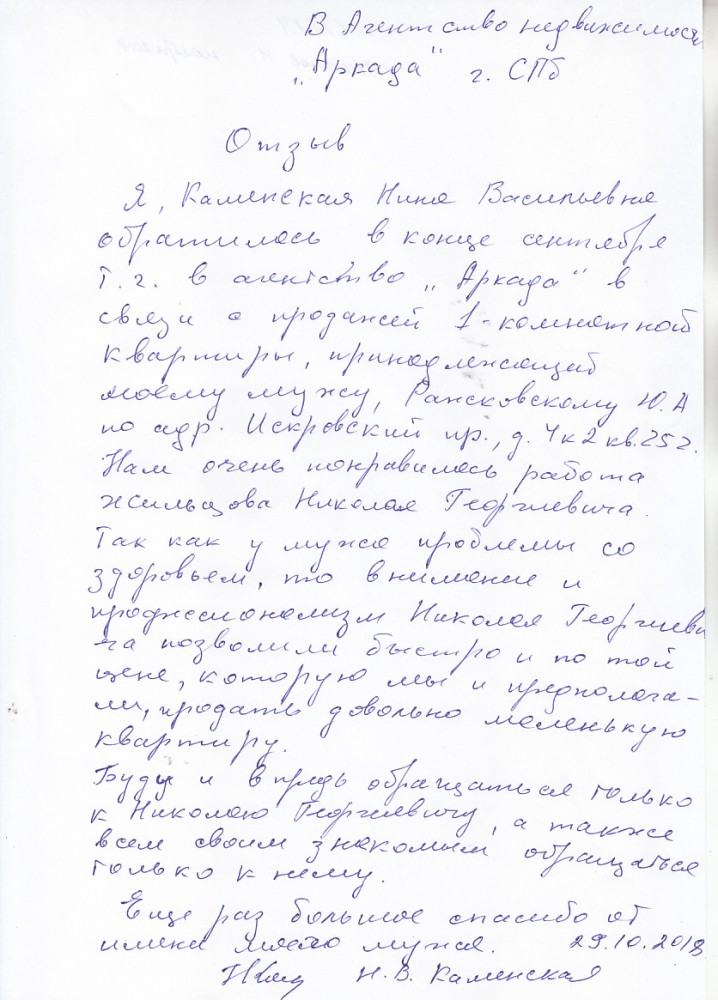 В Агентство недвижимости
„Аркада“ г. СПб
Отзыв
Я, Каменская Нина Васильевна
обратилась в конце сентября
т.г. в агентство „Аркада“ в
связи с продажей 1-комнатной
квартиры, принадлежащей
моему мужу, Ражсковскому Ю.А
по адр. Искровский пр., д. 4 к 2 кв. 252.
Нам очень понравилась работа
Жильцова Николая Георгиевича.
Так как у мужа проблемы со
здоровьем, то внимание и
профессионализм Николая Георгиеви
ча позволили быстро и по той
цене, которую мы и предполага-
ли, продать довольно маленькую
квартиру.
Буду и впредь обращаться только
к Николаю Георгиевичу, а также
всем своим знакомым обращаться
только к нему.
Еще раз большое спасибо от
имени моего мужа. 29.10.2018
Н. В. Каменская